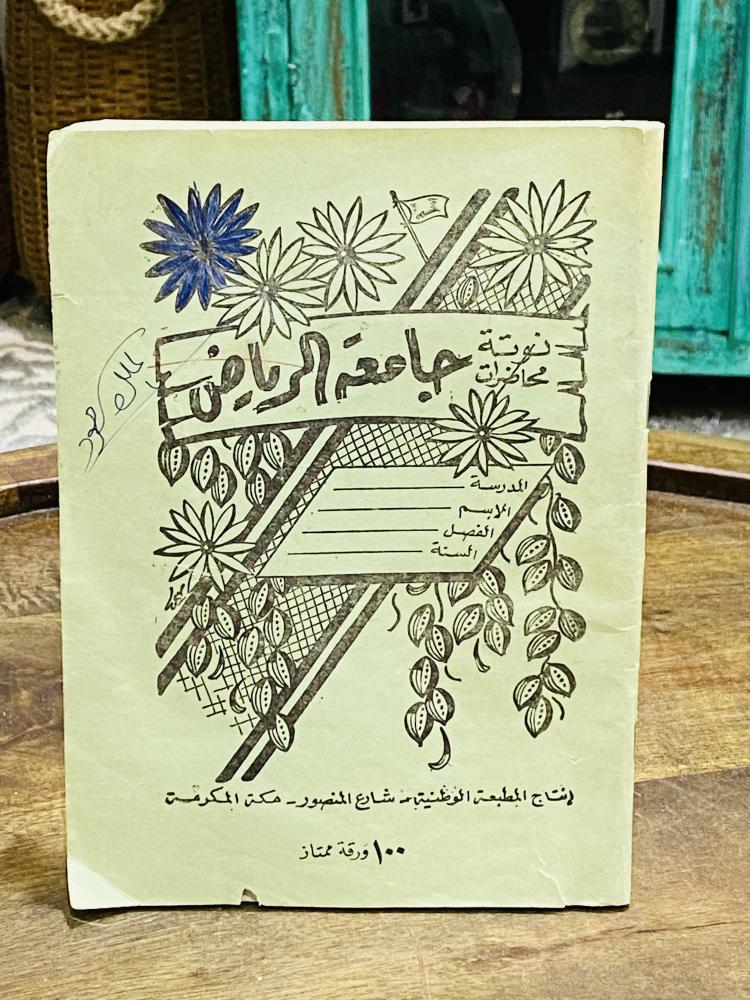 نوتة
محاضرات
جامعة الرياض
المدرسة
الاسم
الفصل
السنة
إنتاج المطبعة الوطنية - شارع المنصور - مكة المكرمة
١٠٠ ورقة ممتاز